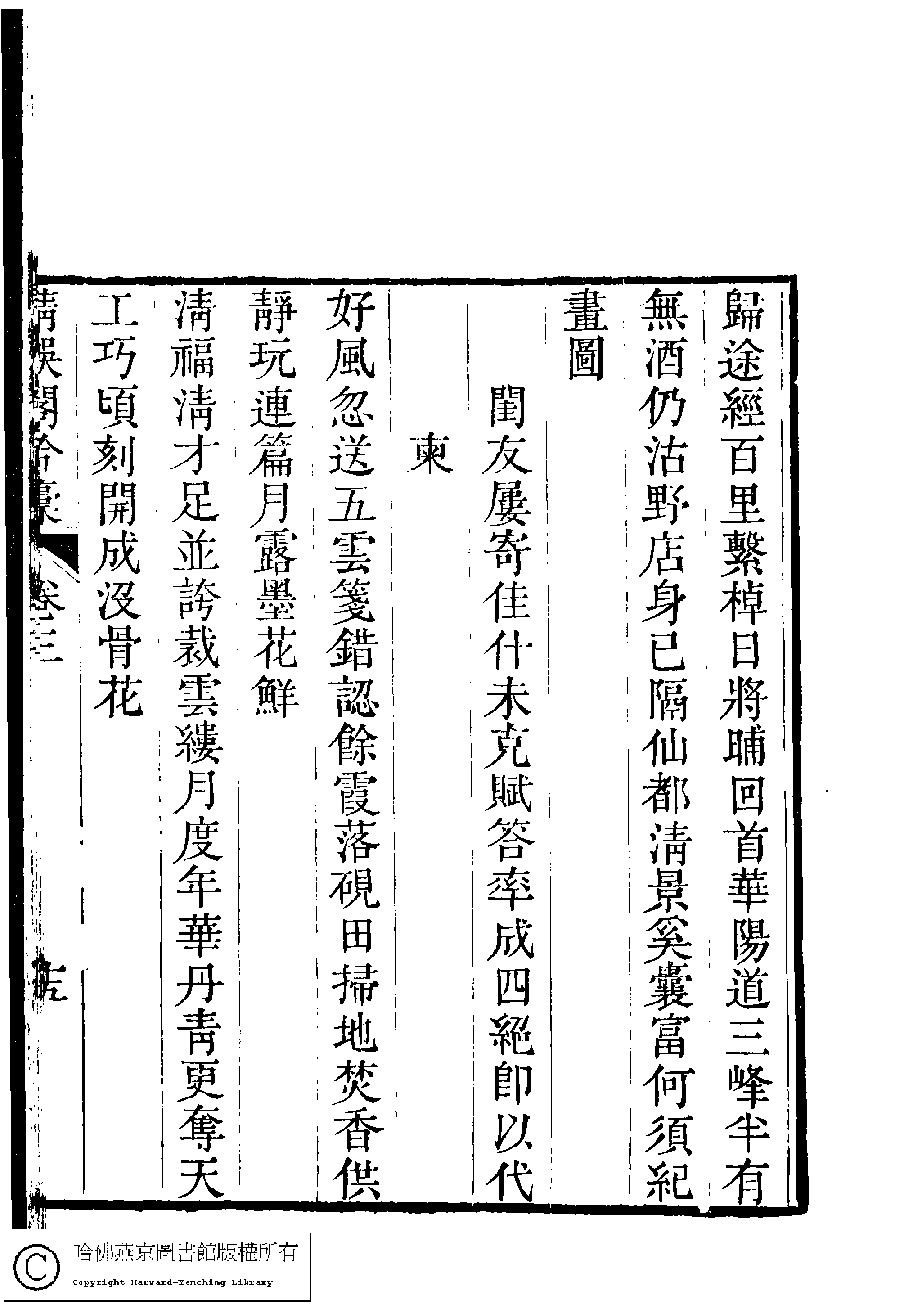 歸途經百里繫棹日將晡回首華陽道三峰半有
無酒仍沽野店身已隔仙都清景奚囊富何須紀
畫圖
閨友屢寄佳什未克賦答率成四絕卽以代
柬
好風忽送五雲箋錯認餘霞落硯田掃地焚香供
靜玩連篇月露墨花鮮
淸福淸才足並誇裁雲縷月度年華丹靑更奪天
工巧頃刻開成沒骨花
卷三
哈佛燕京圖書館版權所有
Copyright Harvard-Yenching Library